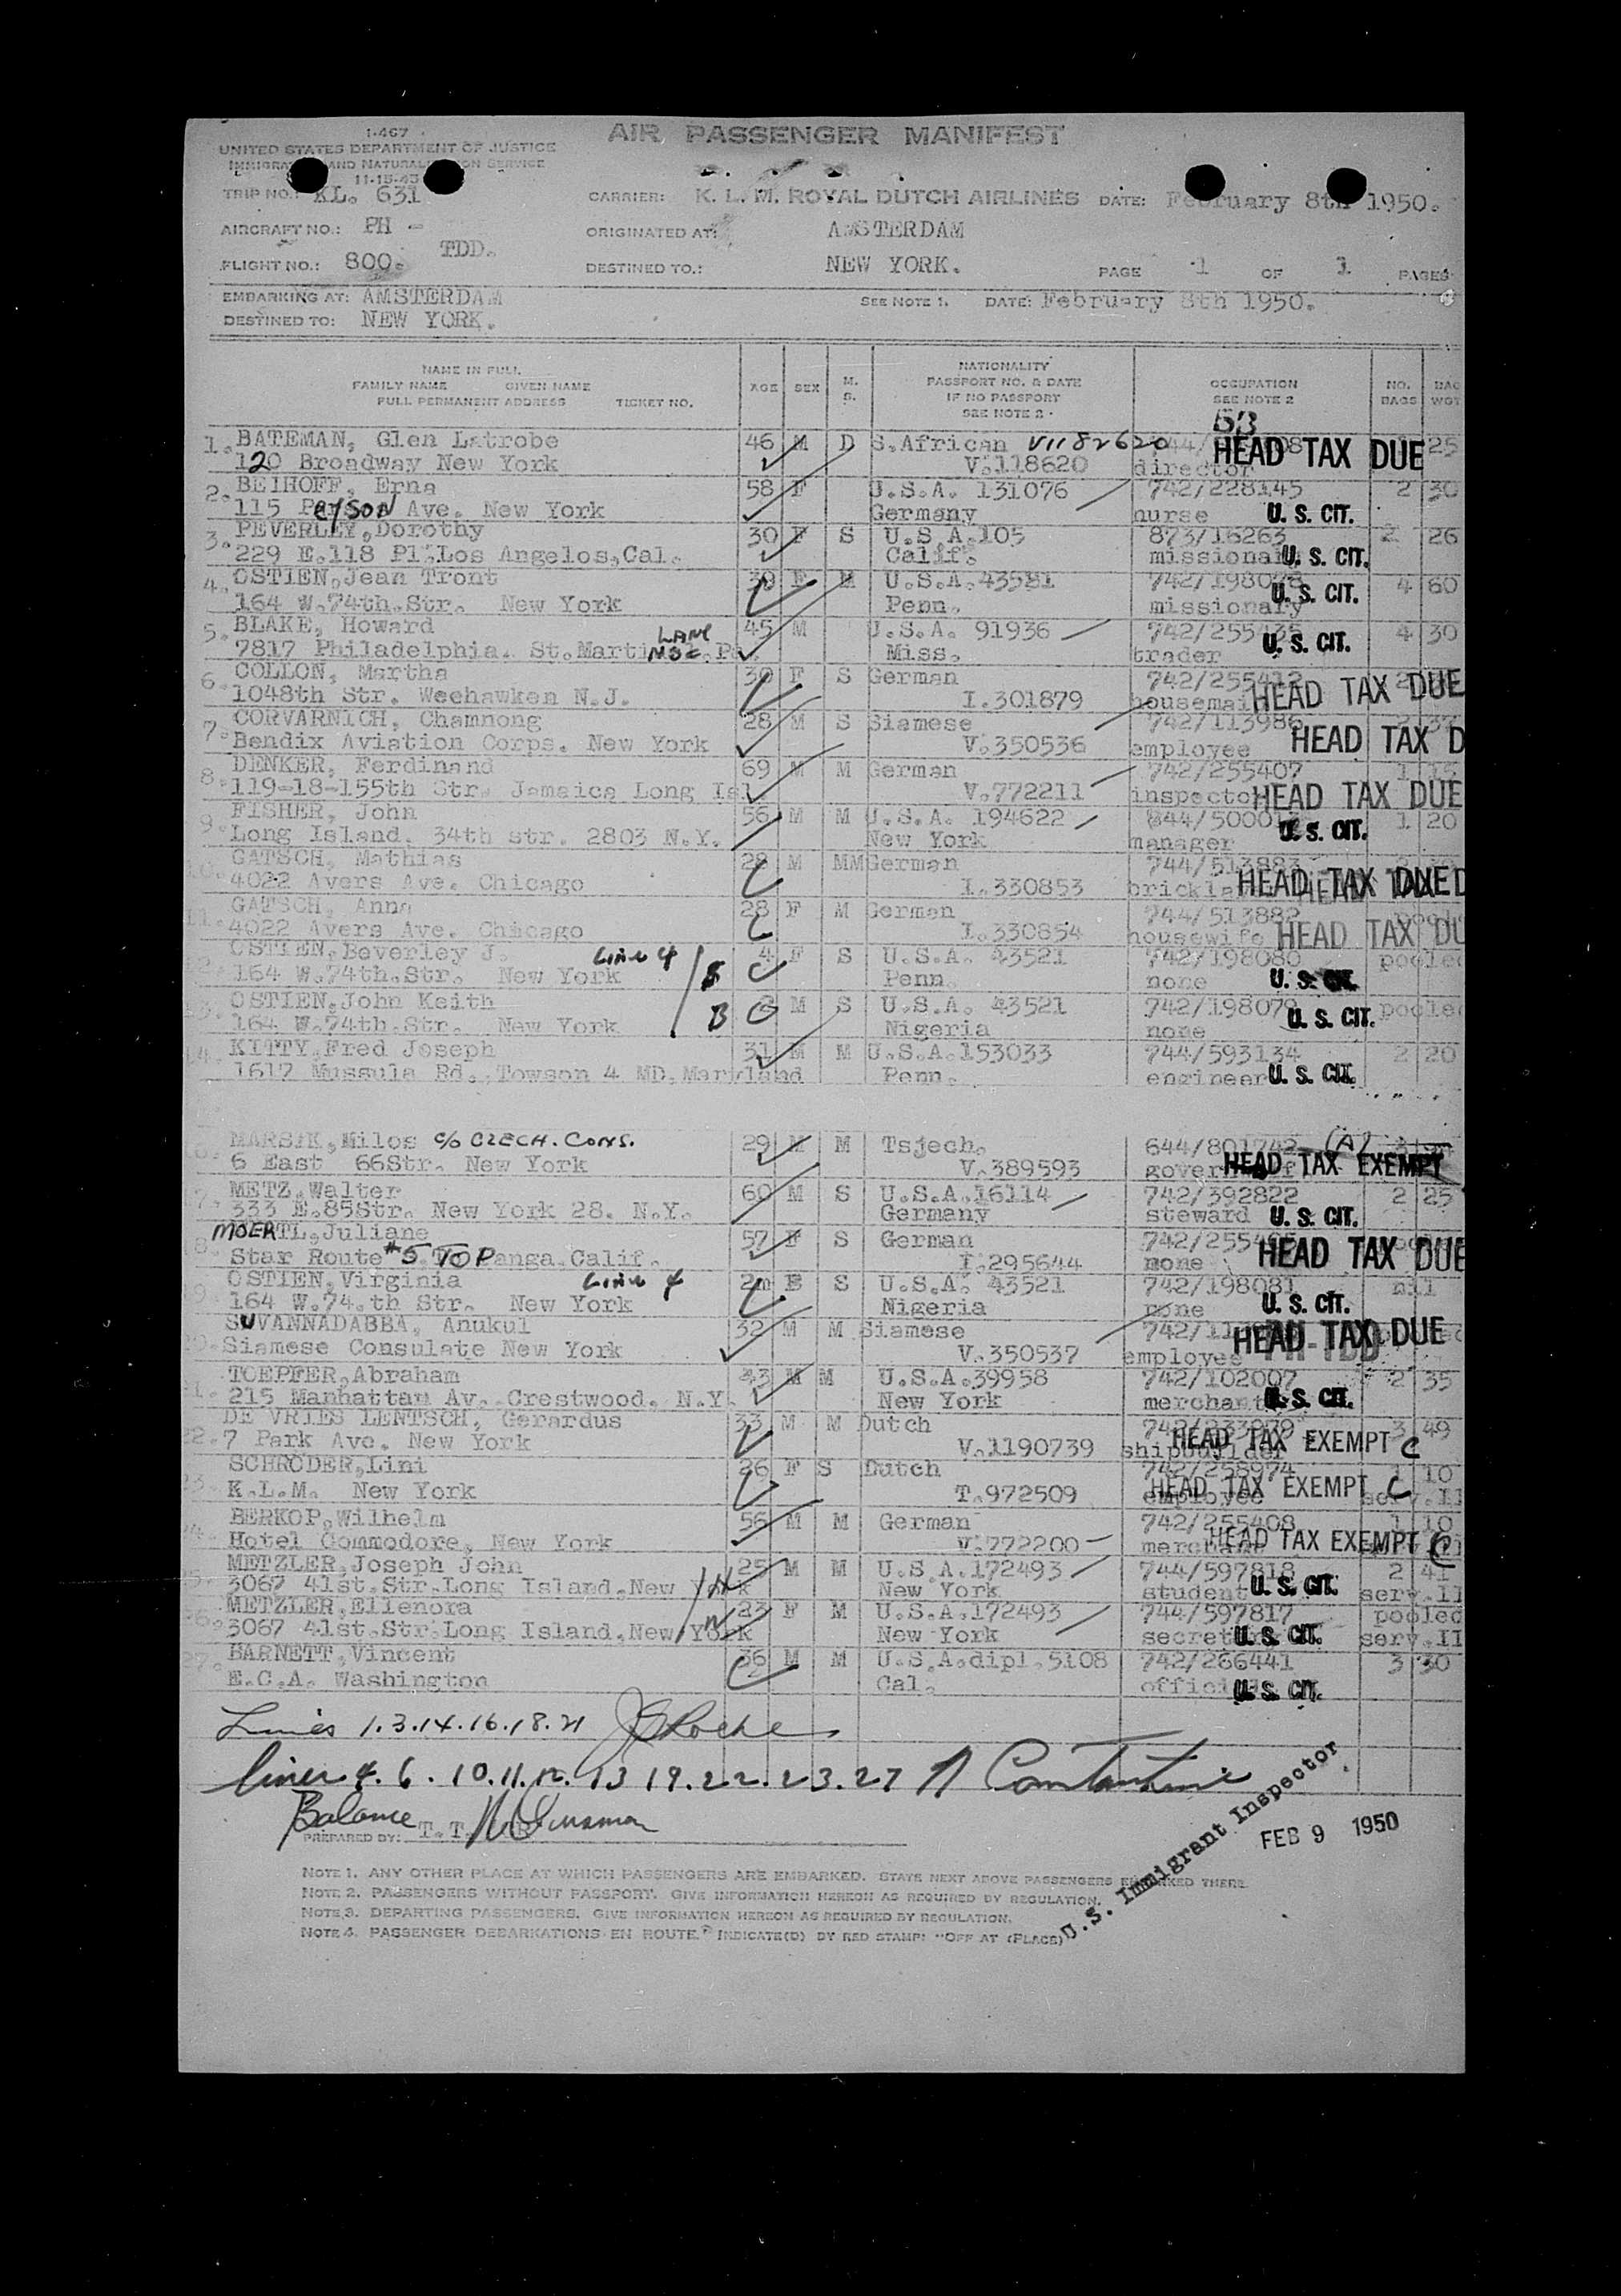 I-467
AIR PASSENGER MANIFEST
UNITED STATES DEPARTMENT OF JUSTICE
IMMIGRA AND NATURALI ON SERVICE
11-15-43
TRIP NO.: KL. 631 CARRIER: K. L. M. ROYAL DUTCH AIRLINES DATE: February 8th 1950.
AIRCRAFT NO.: PH - TDD. ORIGINATED AT: AMSTERDAM
FLIGHT NO.: 800. DESTINED TO.: NEW YORK. PAGE 1 OF 1 PAGES
EMBARKING AT: AMSTERDAM SEE NOTE 1. DATE: February 8th 1950.
DESTINED TO: NEW YORK.
NAME IN FULL
FAMILY NAME GIVEN NAME
FULL PERMANENT ADDRESS TICKET NO.
AGE SEX M. S.
NATIONALITY
PASSPORT NO. & DATE
IF NO PASSPORT
SEE NOTE 2
OCCUPATION
SEE NOTE 2
NO. BAGS BAG WGT
53
1. BATEMAN, Glen Latrobe 46 M D S.African V1182620 HEAD TAX DUE 25
120 Broadway New York V.118620 director
2. BEIHOFF, Erna 58 F U.S.A. 131076 742/228145 2 30
115 Payson Ave. New York Germany nurse U. S. CIT.
3. PEVERLEY, Dorothy 30 F S U.S.A.105 873/16263 2 26
229 E.118 Pl.Los Angelos,Cal. Calif. missiona U. S. CIT.
4. OSTIEN, Jean Tront 30 F M U.S.A.43521 742/198078 4 60
164 W.74th.Str. New York Penn. missionary U. S. CIT.
5. BLAKE, Howard 45 M U.S.A. 91936 742/255435 4 30
7817 Philadelphia. St.Marti LANE Miss. trader U. S. CIT.
6. COLLON, Martha 30 F S German 742/255412
1048th Str. Weehawken N.J. I.301879 housemai HEAD TAX DUE
7. CORVARNICH, Chamnong 28 M S Siamese 742/113986
Bendix Aviation Corps. New York V.350536 employee HEAD TAX D
8. DENKER, Ferdinand 69 M M German 742/255407 1 15
119-18-155th Str. Jamaica Long Isl. V.772211 inspecto HEAD TAX DUE
9. FISHER, John 56 M M U.S.A. 194622 1 20
Long Island. 34th str. 2803 N.Y. New York manager U. S. CIT.
10. GATSCH, Mathias 28 M MM German 744/513883
4022 Avers Ave. Chicago I.330853 brickla HEAD TAX DUE
11. GATSCH, Anna 28 F M German 744/513882 poole
4022 Avers Ave. Chicago I.330854 housewife HEAD TAX DU
OSTIEN, Beverley J. Line 4 4 F S U.S.A. 43521 742/198080 pooled
164 W.74th.Str. New York Penn. none U. S. CIT.
13. OSTIEN, John Keith B M S U.S.A. 43521 742/198079 pooled
164 W.74th.Str. New York Nigeria none U. S. CIT.
14. KITTY, Fred Joseph 31 M M U.S.A.153033 744/593134 2 20
1617 Mussula Rd. Towson 4 MD. Maryland Penn. engineer U. S. CIT.
MARSIK, Milos c/o CZECH. CONS. 29 M M Tsjech. 644/801742 (A)
6 East 66Str. New York V.389593 gover HEAD TAX EXEMPT
METZ, Walter 60 M S U.S.A.16114 742/392822 2 25
333 E.85Str. New York 28. N.Y. Germany steward U. S. CIT.
MOERTL, Juliane 57 F S German
Star Route #5 TOPanga Calif. I.295644 none HEAD TAX DUE
OSTIEN, Virginia Line 4 2m F S U.S.A. 43521 742/198081 nil
164 W.74.th Str. New York Nigeria none U. S. CIT.
SUVANNADABBA, Anukul 32 M M Siamese HEAD TAX DUE
20. Siamese Consulate New York V.350537 employee PH-TDD
TOEPFER, Abraham 43 M M U.S.A.39958 742/102007 2 35
215 Manhattan Av. Crestwood. N.Y. New York merchant U. S. CIT.
DE VRIES LENTSCH, Gerardus 33 M M Dutch 742/233979 3 49
22. 7 Park Ave. New York V.1190739 shipbuilder HEAD TAX EXEMPT C
SCHRODER, Lini 26 F S Dutch 742/258974 1 10
K.L.M. New York T.972509 employee HEAD TAX EXEMPT C serv.II
BERKOP, Wilhelm 56 M M German 742/255408 1 10
Hotel Commodore, New York V.772200 merch HEAD TAX EXEMPT C
METZLER, Joseph John 25 M M U.S.A.172493 744/597818 2 41
3067 41st.Str.Long Island.New York New York student U. S. CIT. serv.II
METZLER, Ellenora 23 F M U.S.A.172493 744/597817 pooled
3067 41st.Str.Long Island.New York New York secret U. S. CIT. serv.II
BARNETT, Vincent 36 M M U.S.A.dipl.5108 742/266441 3 30
E.C.A. Washington Cal. offici U. S. CIT.
Lines 1.3.14.16.18.21 Roche
lines 4.6.10.11.12.13 19.22.23.27
Balance
PREPARED BY: T.T.
U.S. Immigrant Inspector
FEB 9 1950
NOTE 1. ANY OTHER PLACE AT WHICH PASSENGERS ARE EMBARKED. STATE NEXT ABOVE PASSENGERS EMBARKED THERE.
NOTE 2. PASSENGERS WITHOUT PASSPORT. GIVE INFORMATION HEREON AS REQUIRED BY REGULATION.
NOTE 3. DEPARTING PASSENGERS. GIVE INFORMATION HEREON AS REQUIRED BY REGULATION.
NOTE 4. PASSENGER DEBARKATIONS EN ROUTE INDICATE(D) BY RED STAMP: "OFF AT (PLACE)